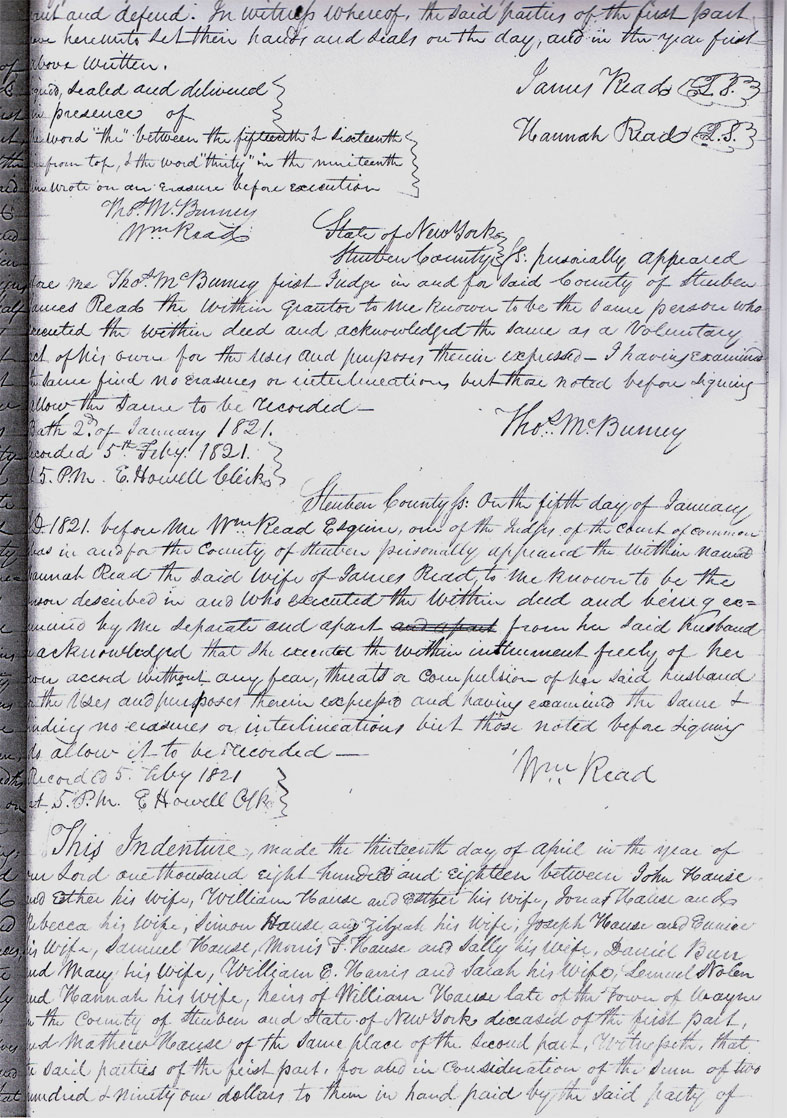 and defend. In witness whereof, the said parties of the first part
have hereunto set their hands and seals on the day, and in the year first
above written.
James Read L.S.
signed, sealed and delivered
presence of
Hannah Read L.S.
word "the" between the fifteenth & sixteenth
from top, & the word "thirty" in the nineteenth
wrote on an erasure before execution
Thos. McBurney
Wm Read
State of New York
Steuben County Ss: personally appeared
ore me Thos. McBurney first Judge in and for said County of Steuben
ames Read the within grantor to me known to be the same person who
xecuted the within deed and acknowledged the same as a Voluntary
ct of his own for the uses and purposes therein expressed – I having examined
same find no erasures or interlineations but those noted before signing
allow the same to be recorded –
Bath 2d. of January 1821.
Thos. McBurney
ecorded 5th Feby. 1821.
5. P.M. E. Howell Clerk
Steuben County Ss: On the fifth day of January
D. 1821. before me Wm Read Esquire, one of the Judges of the court of common
eas in and for the County of Steuben personally appeared the within named
annah Read the said wife of James Read, to me known to be the
erson described in and who executed the within deed and being ex=
mined by me separate and apart and apart from her said husband
acknowledged that she executed the within instrument freely of her
own accord without any fear, threats or compulsion of her said husband
the uses and purposes therein expressed and having examined the same &
inding no erasures or interlineations but those noted before signing
do allow it to be recorded –
Recorded 5. Feby 1821
Wm Read
at 5. P.M. E Howell Clk
This Indenture, made the thirteenth day of April in the year of
our Lord one thousand eight hundred and eighteen between John Hause
and Esther his wife, William Hause and Esther his wife, Jonas Hause and
Rebecca his wife, Simon Hause and Zilpah his wife, Joseph Hause and Eunice
his wife, Samuel Hause, Morris T. Hause and Sally his wife, Daniel Burr
and Mary his wife, William E. Harris and Sarah his wife, Lemuel Nolen
and Hannah his wife, heirs of William Hause late of the town of Wayne
the County of Steuben and State of New York deceased of the first part,
and Mathew Hause of the same place of the second part, Witnesseth, that
said parties of the first part, for and in consideration of the sum of two
hundred & ninety one dollars to them in hand paid by the said party of